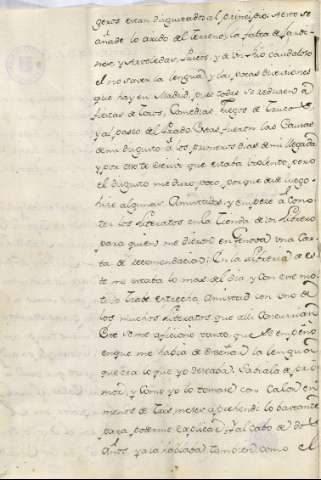 geros estan disgustados al principio. A esto se
añade lo arido del Terreno, la falta de Jardi-
nes, y Arboledas, Paseos, y de un Rio caudaloso
el no saver la lengua y las pocas diversiones
que hay en Madrid, pues todas se reducen a
fiestas de Toros, Comedias, Juegos de Trucos
y al paseo del Prado. Estas fueron las Causas
de mi disgusto a los primeros dias de mi llegada
y por esto te escrivi que estaba violento, pero
el disgusto me duró poco, porque desde luego
hice algunas Amistades, y empecé a Cono-
cer los Literatos en la Tienda de un Librero
para quien me dieron en Genova una Car-
ta de recomendacion. En la Libreria de es-
te me estaba lo mas del dia, y con este mo-
tivo Trabé estrecha Amistad con uno de
los muchos Literatos que alli Concurrian
Este se me aficionó tanto, que se empeñó
en que me habia de enseñar la lengua
que era lo que yo deseaba. Sabiala de pri-
mor, y como yo lo tomase con Calor en
menos de Tres meses aprendi lo bastante
para poderme explicar, y al cabo de dos
Años ya la hablaba tambien como el